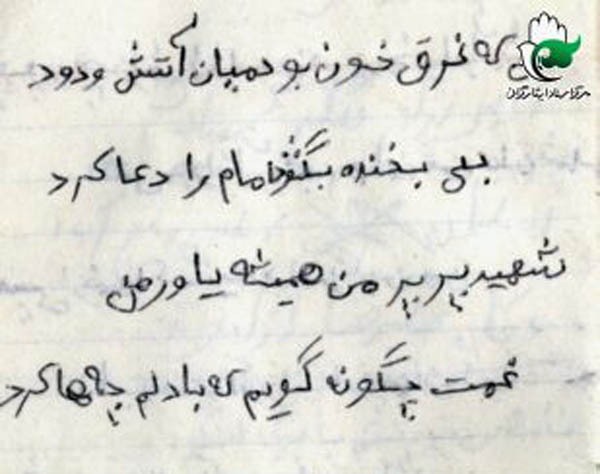 که غرق خون بود میان آتش و دود
مرکز اسناد ایثارگران
بلی بخنده بگفتا امام را دعا کرد
شهید پر پر من همیشه یاور من
غمت چگونه گویم که با دلم چه ها کرد